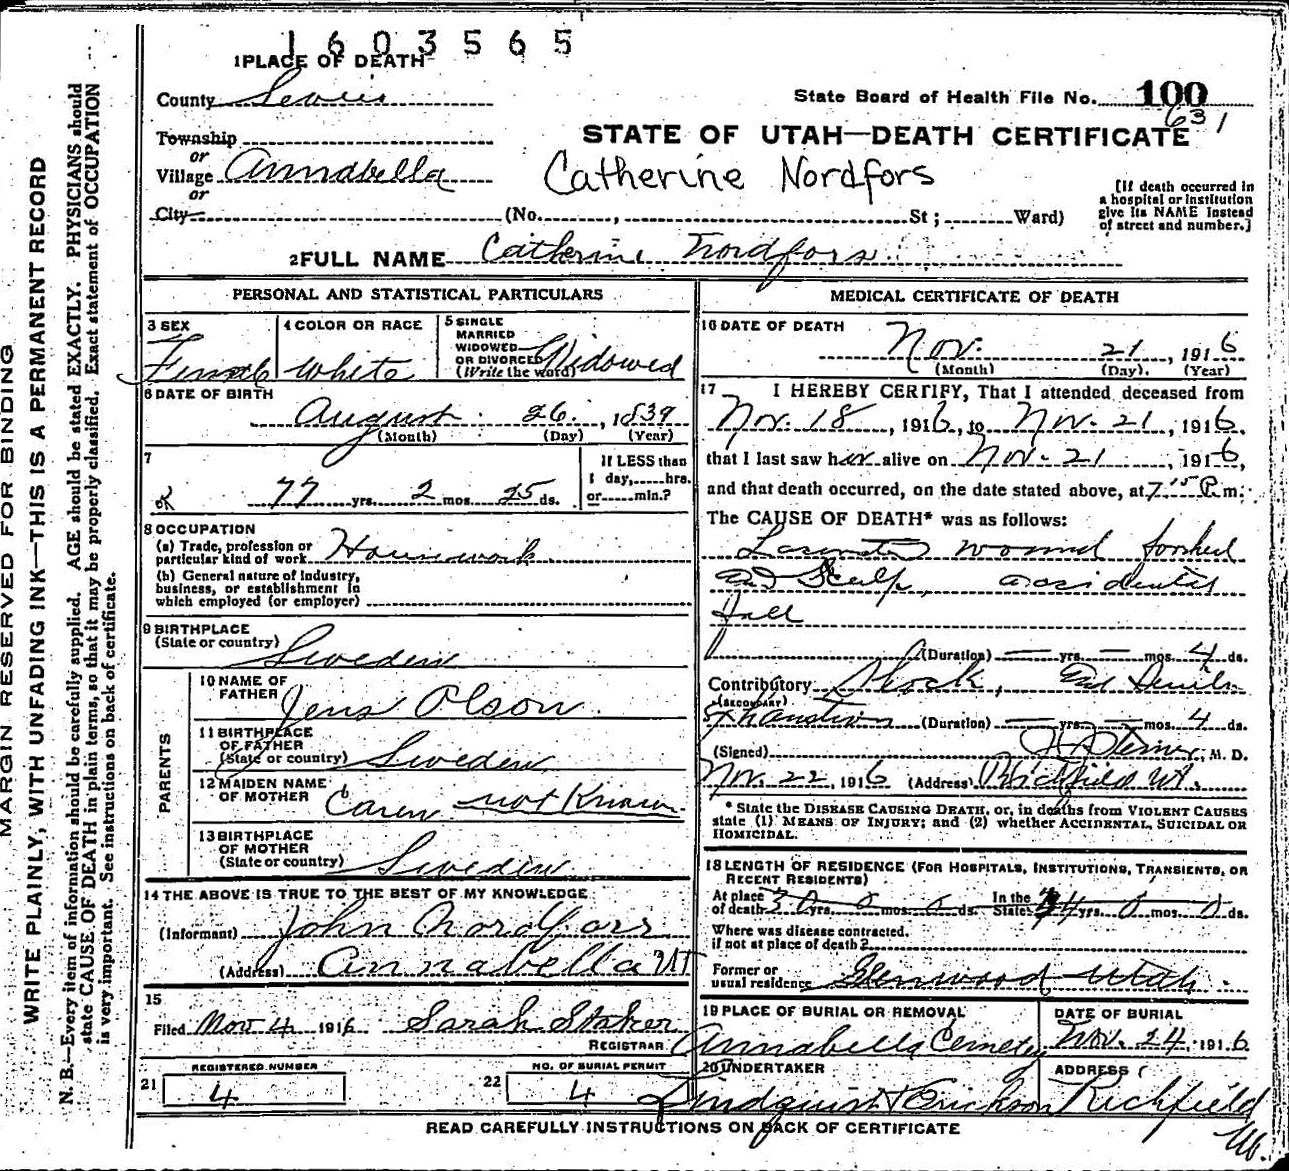 1603565
1 PLACE OF DEATH
County Sevier
State Board of Health File No. 100
631
Township
or
STATE OF UTAH—DEATH CERTIFICATE
Village Annabella
Catherine Nordfors
or
City (No. , St; Ward)
[If death occurred in
a hospital or institution
give its NAME instead
of street and number.]
2 FULL NAME Catherine Nordfors
PERSONAL AND STATISTICAL PARTICULARS
3 SEX
Female
4 COLOR OR RACE
white
5 SINGLE
MARRIED
WIDOWED
OR DIVORCED
(Write the word)
Widowed
6 DATE OF BIRTH
August 26, 1839
(Month) (Day) (Year)
7
77 yrs. 2 mos. 25 ds.
If LESS than
1 day, hrs.
or min.?
8 OCCUPATION
(a) Trade, profession or
particular kind of work Housework
(b) General nature of industry,
business, or establishment in
which employed (or employer)
9 BIRTHPLACE
(State or country) Sweden
PARENTS
10 NAME OF
FATHER Jens Olson
11 BIRTHPLACE
OF FATHER
(State or country) Sweden
12 MAIDEN NAME
OF MOTHER Caren not Known
13 BIRTHPLACE
OF MOTHER
(State or country) Sweden
14 THE ABOVE IS TRUE TO THE BEST OF MY KNOWLEDGE
(Informant) John Nordfors
(Address) Annabella Ut
15
Filed Nov 4 1916 Sarah Staker
REGISTRAR
REGISTERED NUMBER
21 4
NO. OF BURIAL PERMIT
22 4
MEDICAL CERTIFICATE OF DEATH
16 DATE OF DEATH
Nov. 21, 1916
(Month) (Day). (Year)
17 I HEREBY CERTIFY, That I attended deceased from
Nov. 18, 1916, to Nov. 21, 1916,
that I last saw her alive on Nov. 21, 1916,
and that death occurred, on the date stated above, at 7 15 P m.
The CAUSE OF DEATH* was as follows:
wound forehed
and Scalp, accidental
Fall
(Duration) — yrs. — mos. 4 ds.
Contributory Shock, and Senile
(SECONDARY)
Exhaustion (Duration) — yrs. — mos. 4 ds.
(Signed) M. D.
Nov. 22, 1916 (Address) Richfield Ut.
* State the DISEASE CAUSING DEATH, or, in deaths from VIOLENT CAUSES
state (1) MEANS OF INJURY; and (2) whether ACCIDENTAL, SUICIDAL OR
HOMICIDAL.
18 LENGTH OF RESIDENCE (FOR HOSPITALS, INSTITUTIONS, TRANSIENTS, OR
RECENT RESIDENTS)
At place
of death 30 yrs. 0 mos. 0 ds.
In the
State 44 yrs. 0 mos. 0 ds.
Where was disease contracted,
if not at place of death?
Former or
usual residence Glenwood Utah
19 PLACE OF BURIAL OR REMOVAL
Annabella Cemetery
DATE OF BURIAL
Nov. 24, 1916
20 UNDERTAKER
Lindquist & Erickson
ADDRESS
Richfield
Ut.
READ CAREFULLY INSTRUCTIONS ON BACK OF CERTIFICATE
MARGIN RESERVED FOR BINDING
WRITE PLAINLY, WITH UNFADING INK—THIS IS A PERMANENT RECORD
N. B.—Every item of information should be carefully supplied. AGE should be stated EXACTLY. PHYSICIANS should
state CAUSE OF DEATH in plain terms, so that it may be properly classified. Exact statement of OCCUPATION
is very important. See instructions on back of certificate.